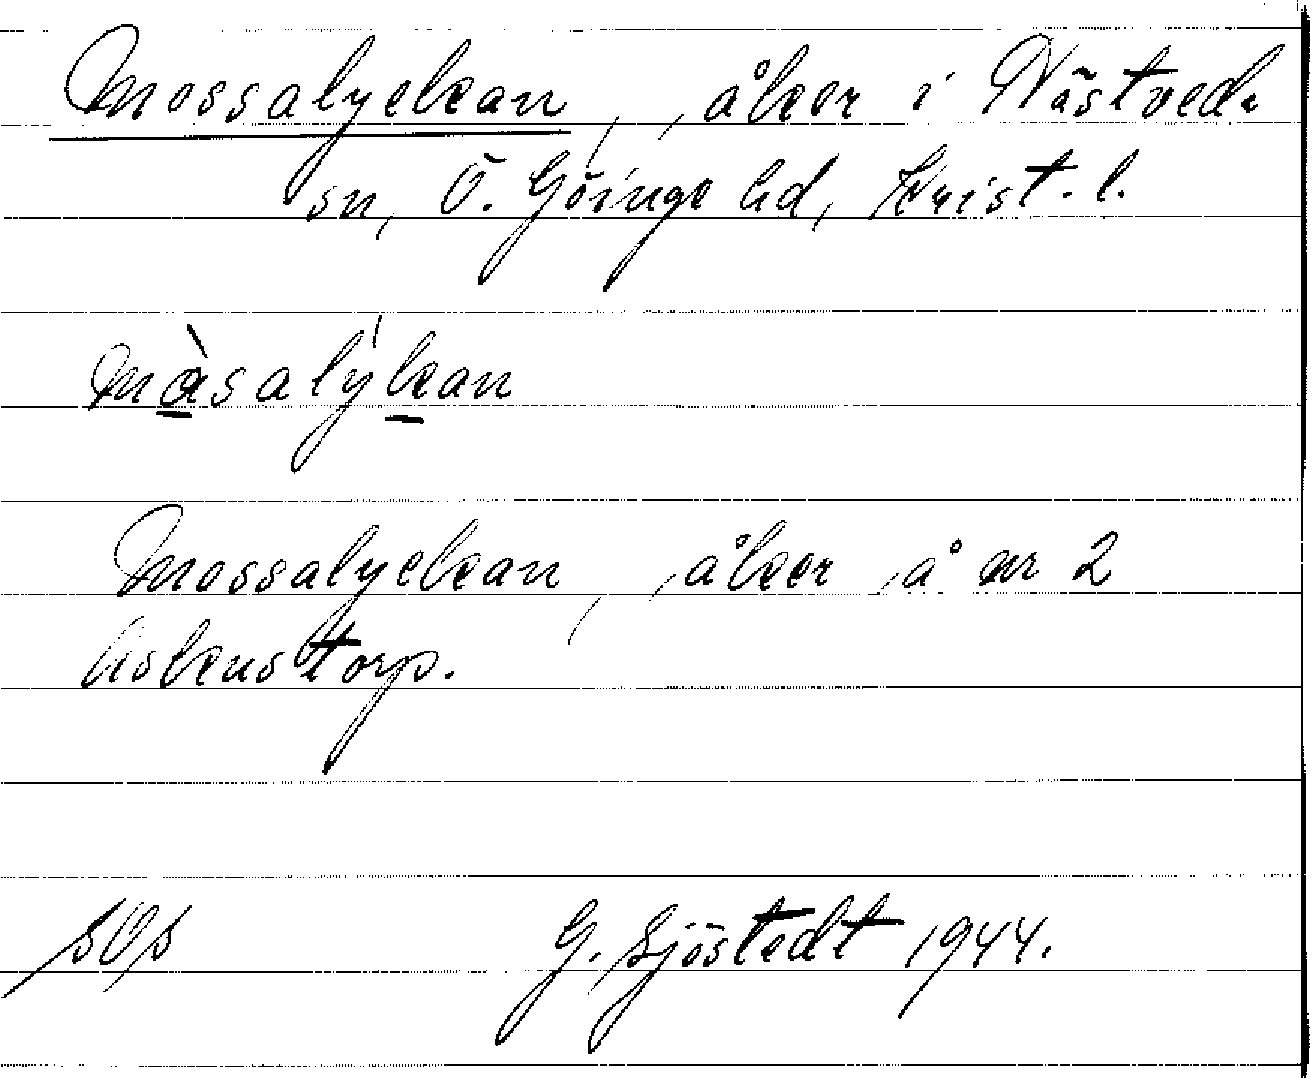 Mossalyckan, åker i Nåstveda
sn, Ö. Göinge hd, Krist. l.
måsalýkan
Mossalyckan, åker å nr 2
Askenstorp.
G. Sjöstedt 1944.